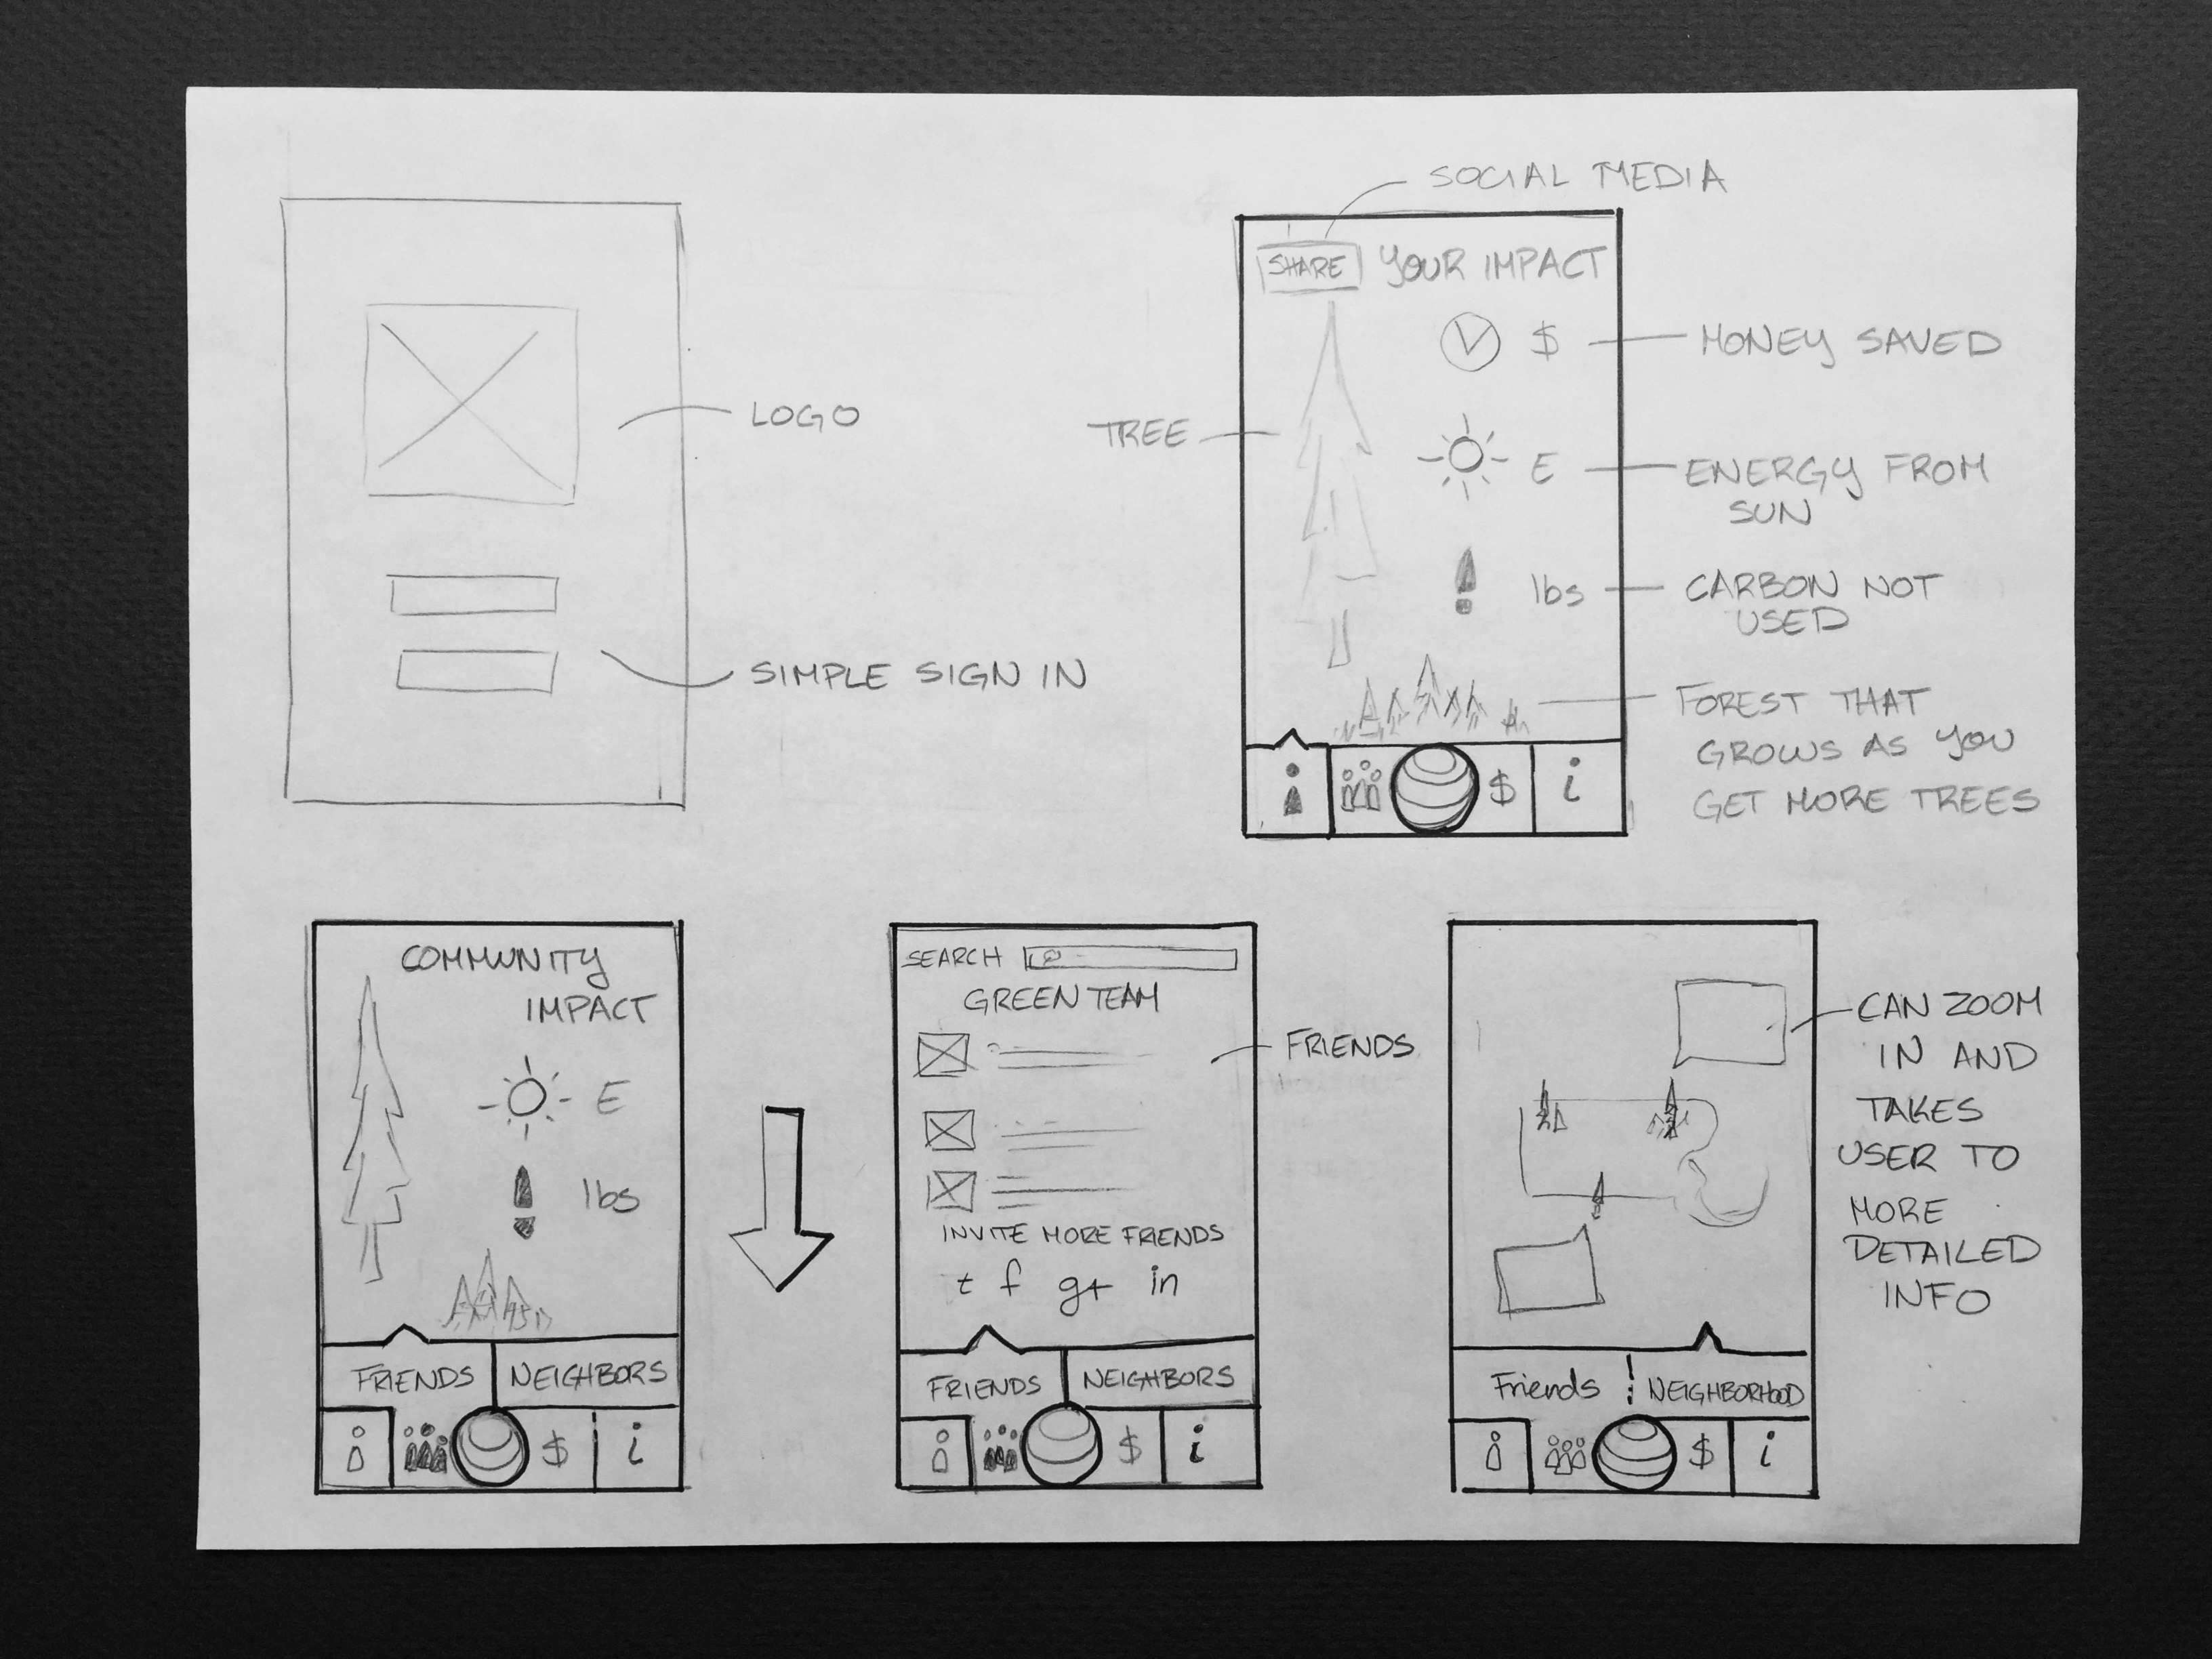 LOGO
SIMPLE SIGN IN
SOCIAL MEDIA
SHARE YOUR IMPACT
$
MONEY SAVED
TREE
E
ENERGY FROM
SUN
lbs
CARBON NOT
USED
FOREST THAT
GROWS AS YOU
GET MORE TREES
$ i
COMMUNITY
IMPACT
E
lbs
FRIENDS NEIGHBORS
$ i
SEARCH
GREEN TEAM
FRIENDS
INVITE MORE FRIENDS
t f g+ in
FRIENDS NEIGHBORS
$ i
CAN ZOOM
IN AND
TAKES
USER TO
MORE
DETAILED
INFO
Friends NEIGHBORHOOD
$ i